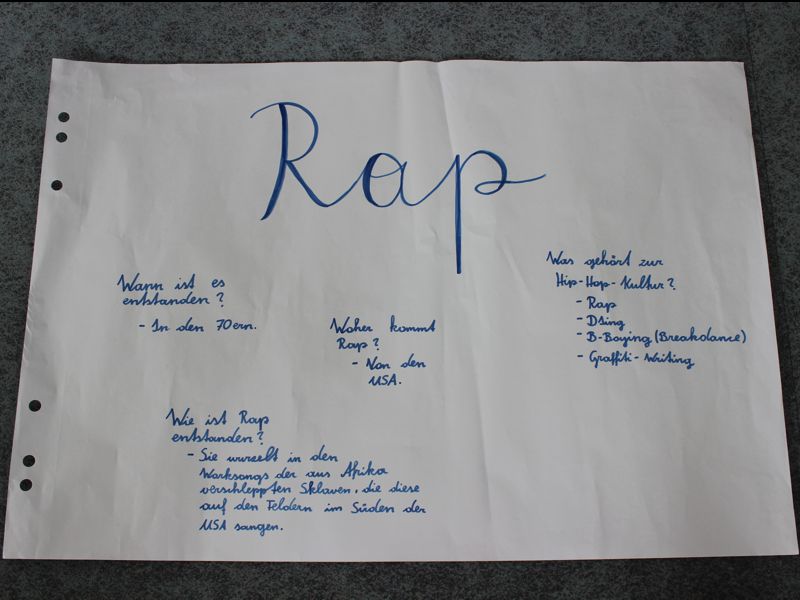 Rap
Wann ist es
entstanden?
- In den 70ern.
Woher kommt
Rap?
- Von den
USA.
Was gehört zur
Hip-Hop-Kultur?
- Rap
- DJing
- B-Boying (Breakdance)
- Graffiti-Writing
Wie ist Rap
entstanden?
- Sie wurzelt in den
Worksongs der aus Afrika
verschleppten Sklaven, die diese
auf den Feldern im Süden der
USA sangen.